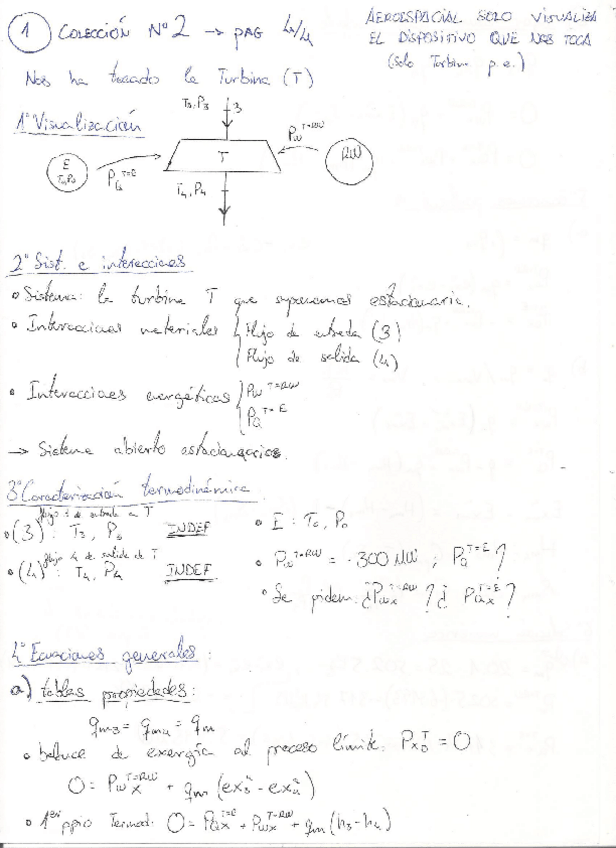 ① COLECCIÓN Nº2 → PAG 4/4
AEROESPACIAL SOLO VISUALIZA
EL DISPOSITIVO QUE NOS TOCA
(solo Turbina p.e.)
Nos ha tocado la Turbina (T)
1º Visualización
T3, P3
3
E
T0, P0
PQ^T=E
T
PW^T=RW
RW
T4, P4
2º Sist. e interacciones
• Sistema: la turbina T que suponemos estacionaria.
• Interacciones materiales { Flujo de entrada (3)
Flujo de salida (4)
• Interacciones energéticas { PW^T=RW
PQ^T=E
→ Sistema abierto estacionario.
3º Caracterización termodinámica.
flujo 3 de entrada en T
• (3): T3, P INDEF
flujo 4 de salida de T
• (4): T4, P4 INDEF
• E: T0, P0
• PW^T=RW = -300 MW; PQ^T=E ?
• Se piden: ¿PWX^T=RW? ¿PQX^T=E?
4º Ecuaciones generales:
a) tablas propiedades:
qm3 = qm4 = qm
• balance de exergía al proceso límite: PXD^T = 0
0 = PWX^T=RW + qm (ex3 - ex4)
• 1er ppio Termod: 0 = PQX^T=E + PWX^T=RW + qm (h3 - h4)